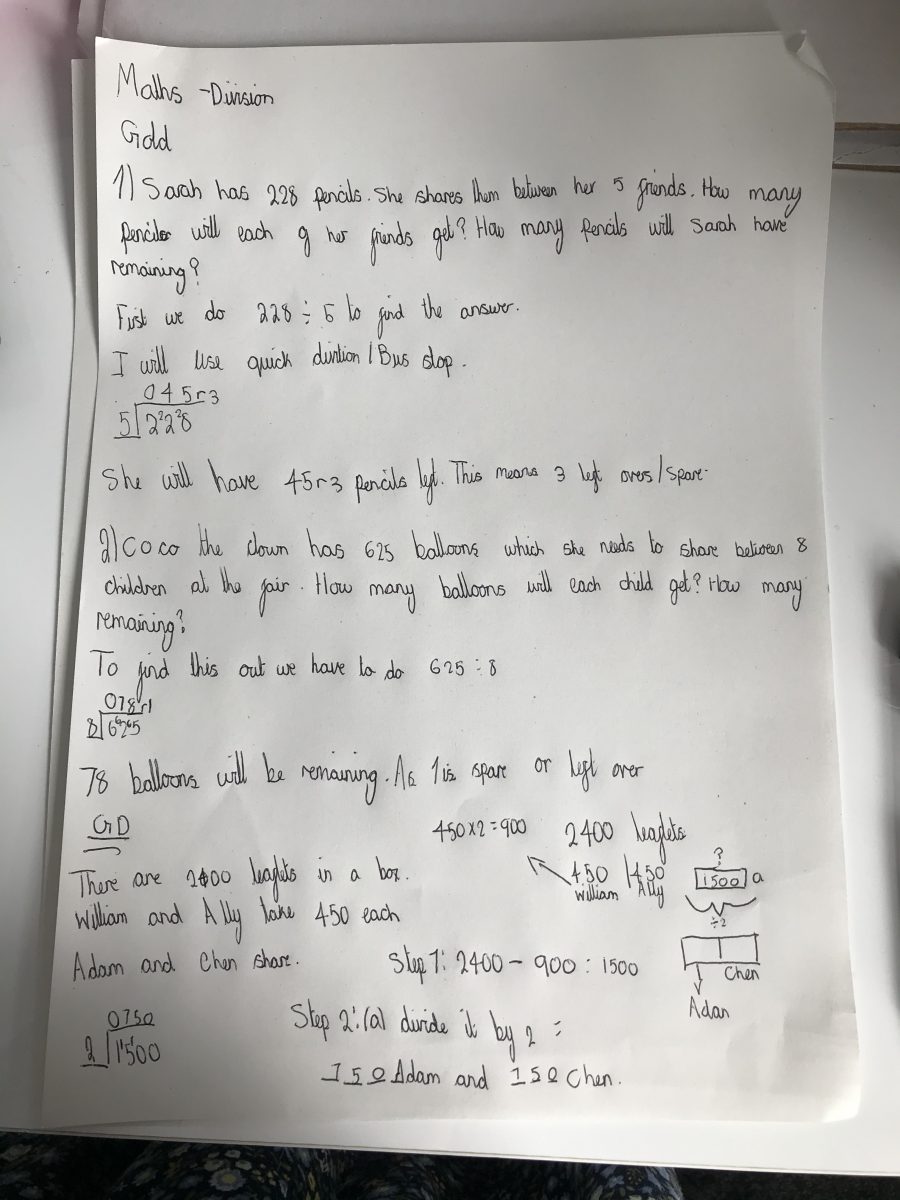 Maths - Division
Gold
1) Sarah has 228 pencils. She shares them between her 5 friends. How many
pencils will each of her friends get? How many pencils will Sarah have
remaining?
First we do 228 ÷ 5 to find the answer.
I will use quick division / Bus stop.
045r3
5 2²2²8
She will have 45r3 pencils left. This means 3 left overs / spare.
2) Coco the clown has 625 balloons which she needs to share between 8
children at the fair. How many balloons will each child get? How many
remaining?
To find this out we have to do 625 ÷ 8
078r1
8 6⁶2⁶5
78 balloons will be remaining. As 1 is spare or left over
GD
450×2=900 2400 leaflets
There are 2400 leaflets in a box.
450 | 450
William Ally
?
1500 a
÷2
William and Ally take 450 each
Adam and Chen share.
Step 1: 2400 - 900 = 1500
Chen
Adan
0750
2 1¹5¹00
Step 2: (a) divide it by 2 =
750 Adam and 750 Chen.